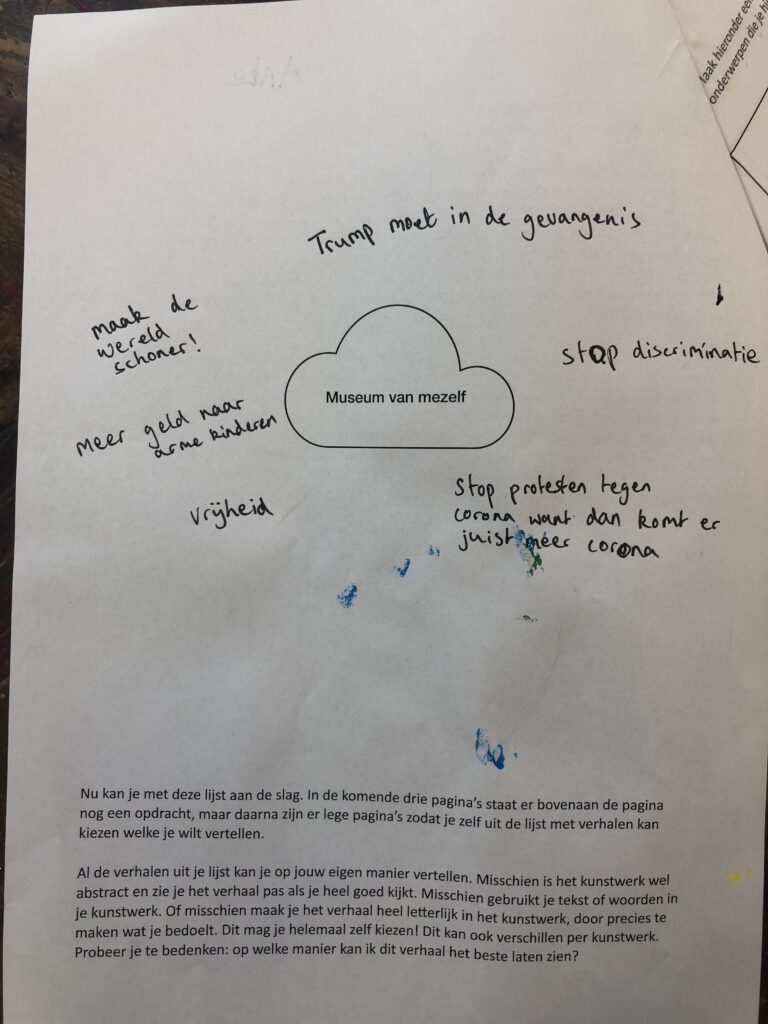 laak hieronder een
onderwerpen die je hi
Trump moet in de gevangenis
maak de
wereld
schoner!
stop discriminatie
Museum van mezelf
meer geld naar
arme kinderen
vrijheid
Stop protesten tegen
corona want dan komt er
juist méer corona
Nu kan je met deze lijst aan de slag. In de komende drie pagina's staat er bovenaan de pagina
nog een opdracht, maar daarna zijn er lege pagina's zodat je zelf uit de lijst met verhalen kan
kiezen welke je wilt vertellen.
Al de verhalen uit je lijst kan je op jouw eigen manier vertellen. Misschien is het kunstwerk wel
abstract en zie je het verhaal pas als je heel goed kijkt. Misschien gebruikt je tekst of woorden in
je kunstwerk. Of misschien maak je het verhaal heel letterlijk in het kunstwerk, door precies te
maken wat je bedoelt. Dit mag je helemaal zelf kiezen! Dit kan ook verschillen per kunstwerk.
Probeer je te bedenken: op welke manier kan ik dit verhaal het beste laten zien?